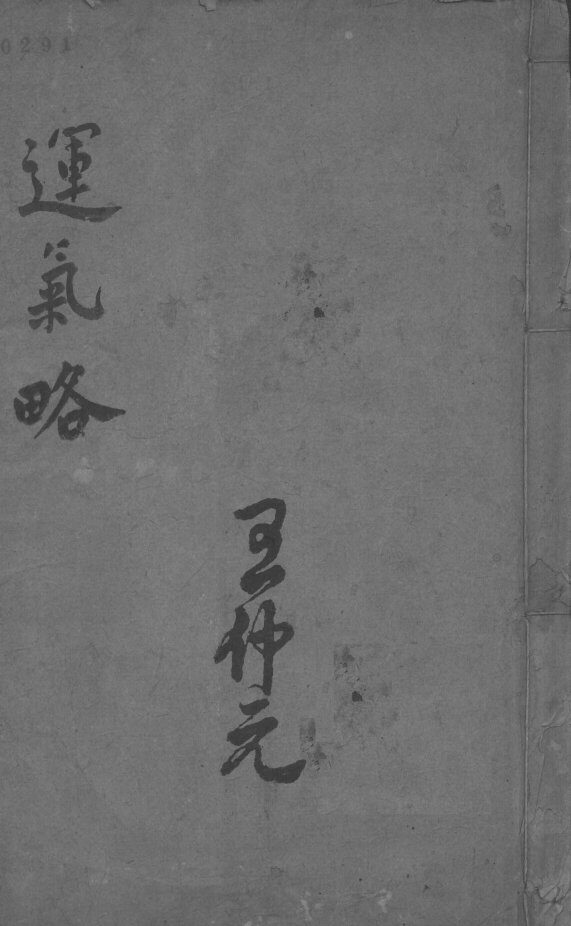 0291
運氣略
王仲元